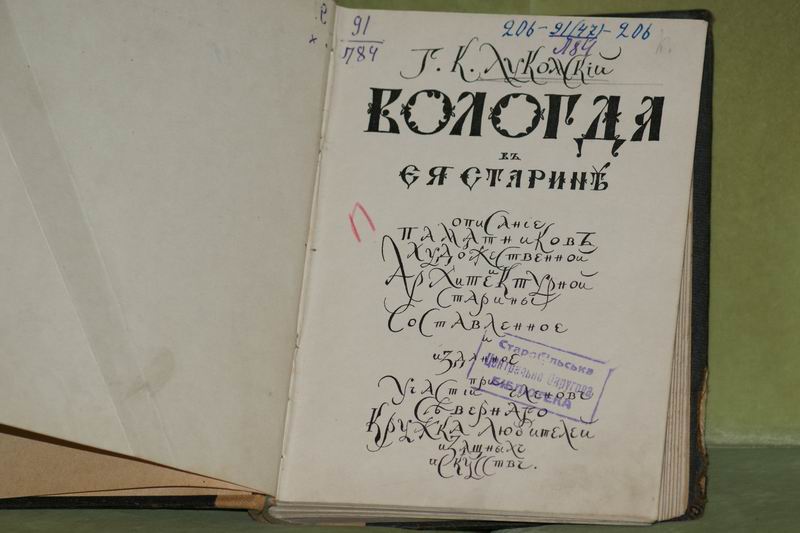 91
784
206-91(47)-206
Л84
Г. К. Лукомскій
ВОЛОГДА
ВЪ
ЕЯ СТАРИНѢ
П
описаніе
памятниковъ
художественной
и
Архитектурной
старины
Составленное
и
изданное
при
Участіи членовъ
Сѣвернаго
Кружка Любителей
изящныхъ
искусствъ.
Старобільська
Центральна Округова
БІБЛІОТЕКА